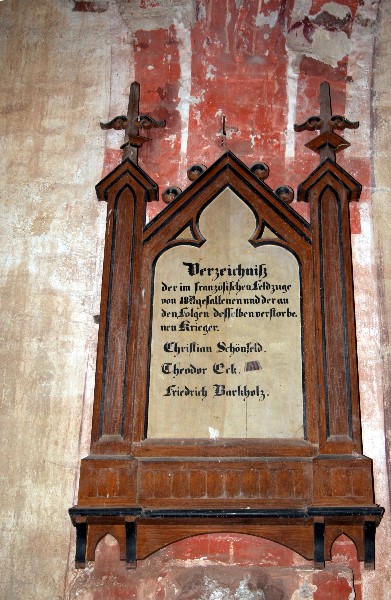 Verzeichniß
der im französischen Feldzuge
von 1870/71 gefallenen und der an
den Folgen desselben verstorbe.
nen Krieger.
Christian Schönfeld.
Theodor Eck.
Friedrich Barkholz.